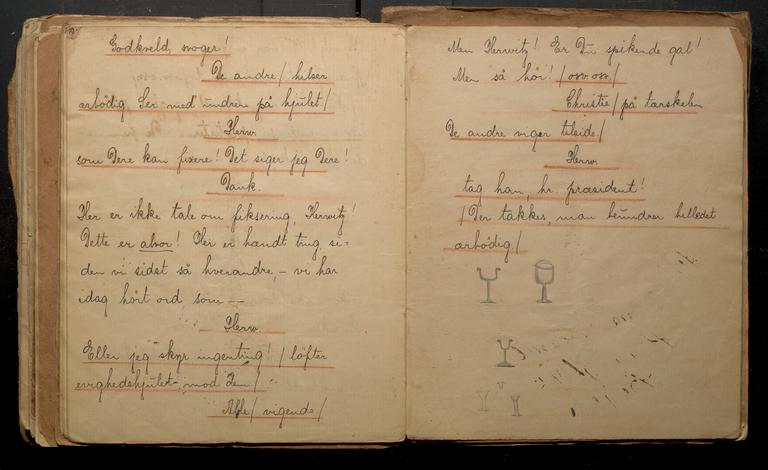 Godkveld, svoger!
De andre / hilser
ærbödig. Ser med undren på hjulet /
Herw.
som Dere kan fixere! Det siger jeg Dere!
Dank.
Her er ikke tale om fiksering, Herwitz!
Dette er alvor! Her er hændt ting si-
den vi sidst så hverandre, – vi har
idag hört ord, som – –
Herw.
Eller jeg skyr ingenting! / löfter
evighedshjulet mod dem /
Alle / vigende /
Men Herwitz! Er Du spikende gal!
Men så hör! / osv. osv. /
Christie / på tærskelen
De andre viger tilside /
Herw.
tag han, hr. præsident!
/ Der takkes, man beundrer billedet
ærbödig /